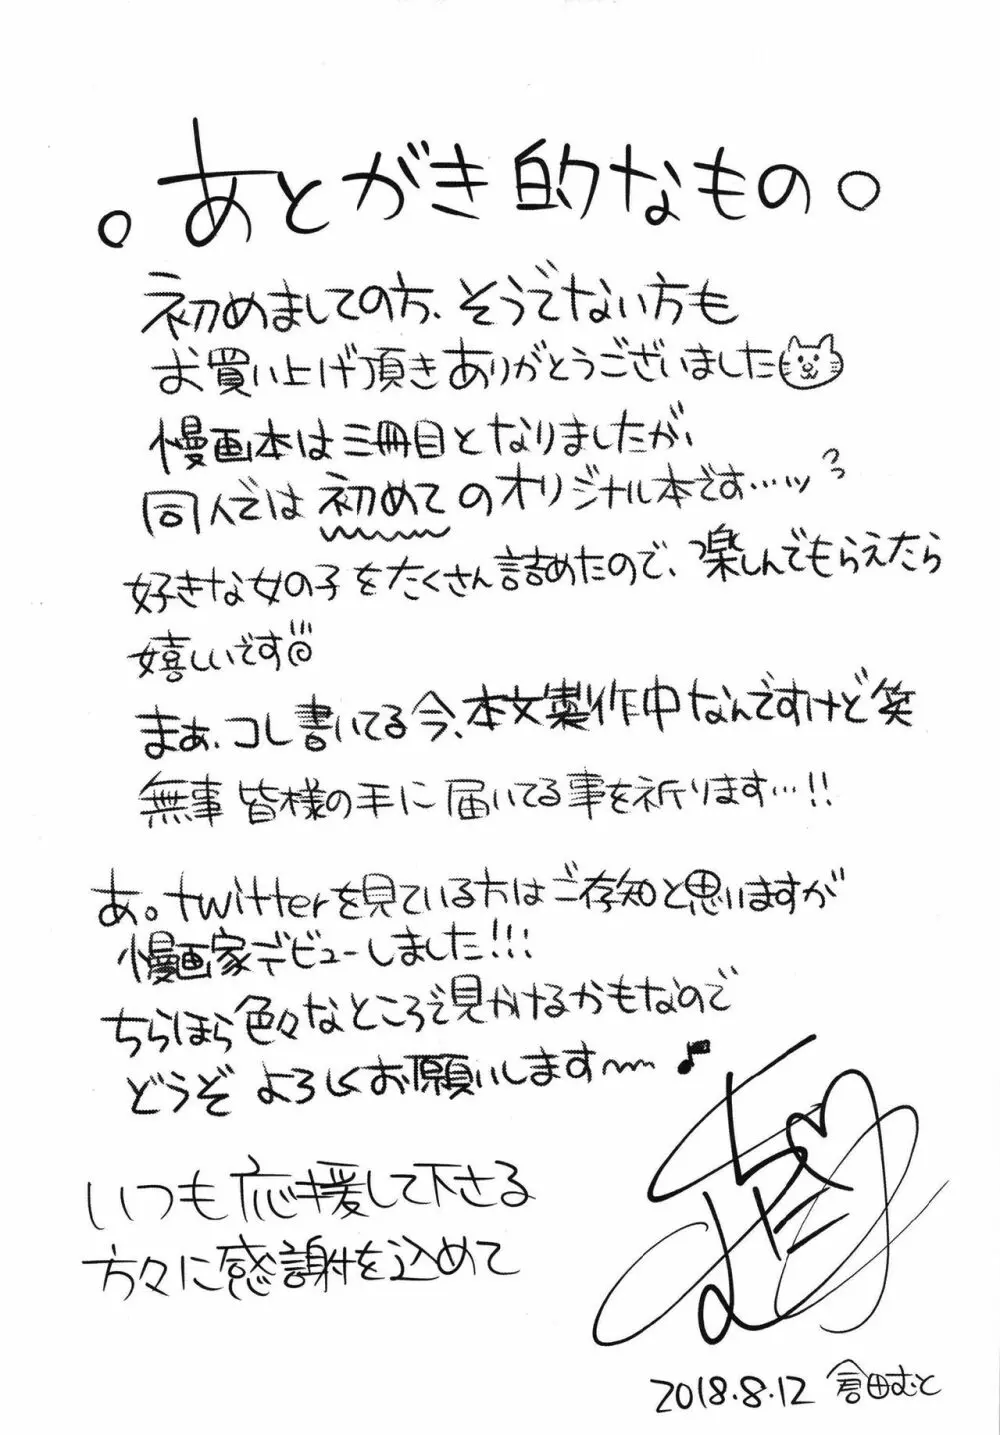 。あとがき的なもの○
初めましての方、そうでない方も
お買い上げ頂きありがとうございました
漫画本は三冊目となりましたが、
同人では初めてのオリジナル本です…ッ
好きな女の子をたくさん詰めたので、楽しんでもらえたら
嬉しいです
まぁ、コレ書いてる今、本文製作中なんですけど笑
無事皆様の手に届いてる事を祈ります…!!
あ。twitterを見ている方はご存知と思いますが
漫画家デビューしました!!!
ちらほら色々なところで見かけるかもなので
どうぞよろしくお願いします〜♪
いつも応援して下さる
方々に感謝を込めて
2018.8.12 倉田むと